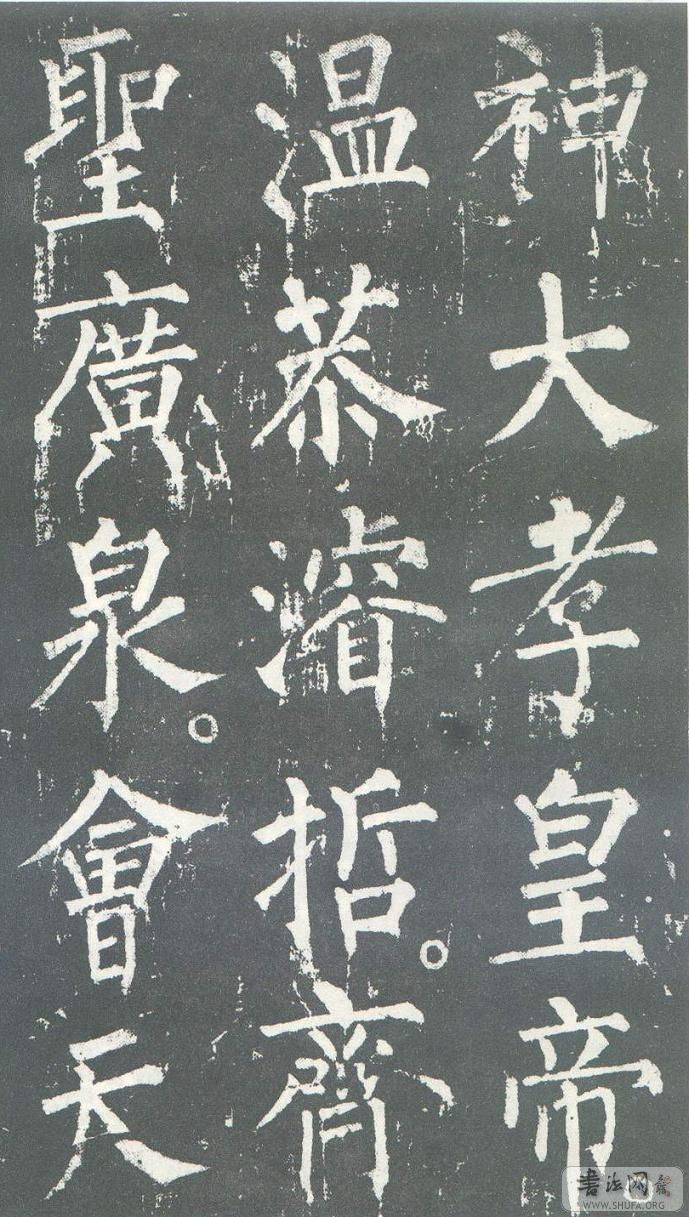 神大孝皇帝
温恭濬哲。齊
聖廣泉。會天
書法网
WWW.SHUFA.ORG